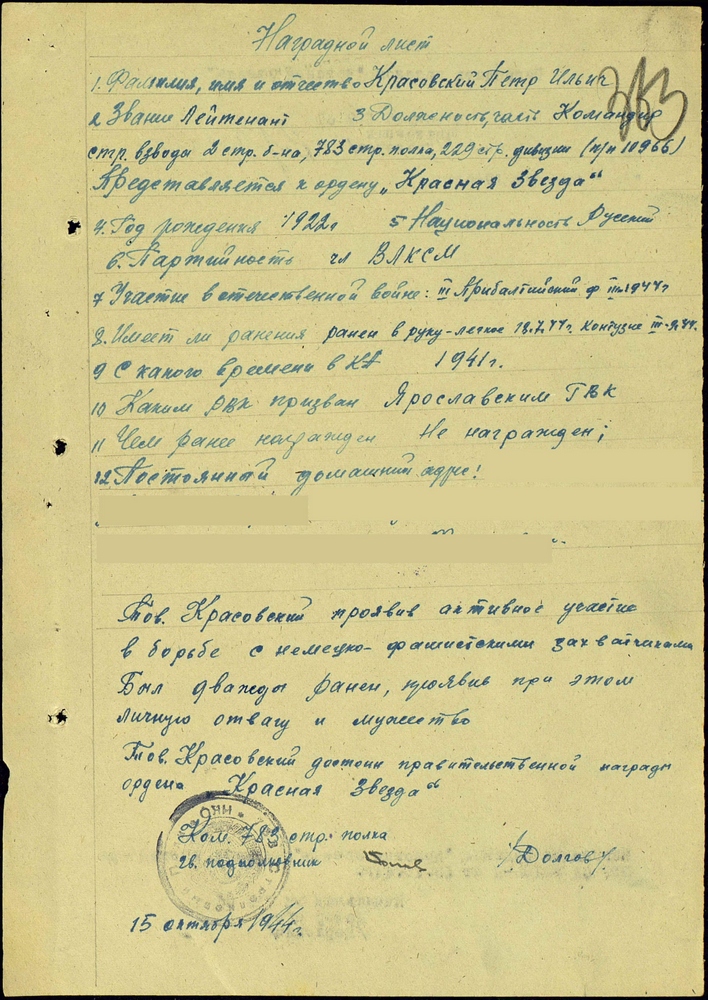 Наградной лист
363
1. Фамилия, имя и отчество Красовский Петр Ильич
2 Звание Лейтенант 3 Должность, часть Командир
стр. взвода 2 стр. б-на, 783 стр. полка, 229 стр. дивизии (п/п 10966)
Представляется к ордену „Красная Звезда“
4. Год рождения 1922г 5 Национальность Русский
6. Партийность чл ВЛКСМ
7 Участие в отечественной войне: III Прибалтийский ф III-1944г
8. Имеет ли ранения ранен в руку-легкое 18.7.44г. Контузия III-9.44.
9 С какого времени в КА 1941г.
10 Каким РВК призван Ярославским ГВК
11 Чем ранее награжден Не награжден;
12 Постоянный домашний адрес!
Тов. Красовский проявив активное участие
в борьбе с немецко-фашистскими захватчиками
Был дважды ранен, проявив при этом
личную отвагу и мужество
Тов. Красовский достоин правительственной награды
ордена Красная Звезда“
Ком. 783 стр. полка
гв. подполковник /Долгов/
15 октября 1944г.
НКО